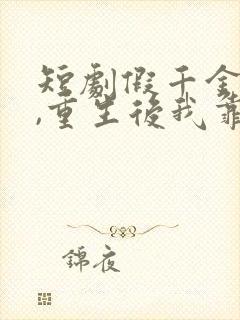 短劇假千金
,重生後我靠
錦夜